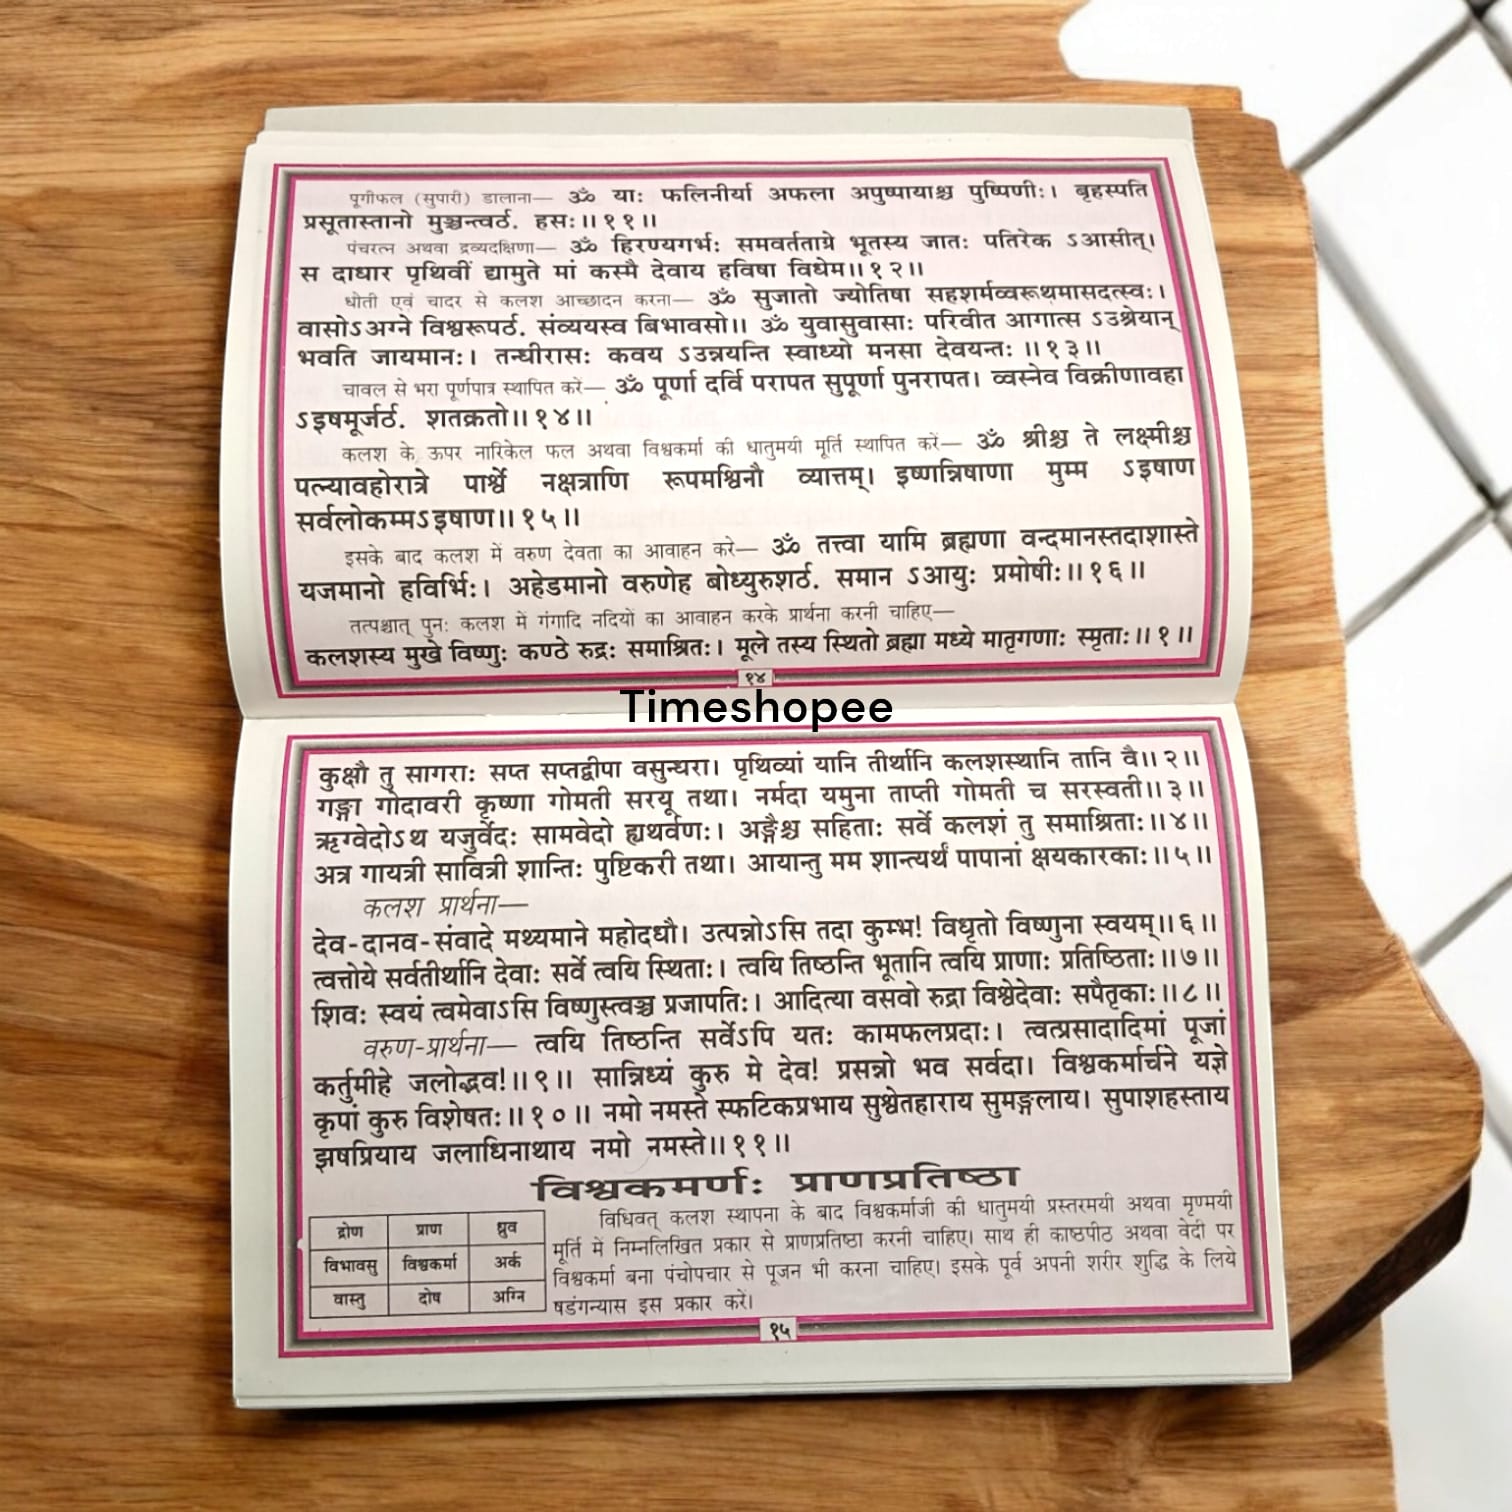 पूगीफल (सुपारी) डालाना— ॐ याः फलिनीर्या अफला अपुष्पायाश्च पुष्पिणीः। बृहस्पति
प्रसूतास्तानो मुञ्चन्त्वर्ठ. हसः॥११॥
पंचरत्न अथवा द्रव्यदक्षिणा— ॐ हिरण्यगर्भः समवर्तताग्रे भूतस्य जातः पतिरेक ऽआसीत्।
स दाधार पृथिवीं द्यामुते मां कस्मै देवाय हविषा विधेम॥१२॥
धोती एवं चादर से कलश आच्छादन करना— ॐ सुजातो ज्योतिषा सहशर्मव्वरूथमासदत्स्वः।
वासोऽअग्ने विश्वरूपर्ठ. संव्ययस्व बिभावसो॥ ॐ युवासुवासाः परिवीत आगात्स ऽउश्रेयान्
भवति जायमानः। तन्धीरासः कवय ऽउन्नयन्ति स्वाध्यो मनसा देवयन्तः॥१३॥
चावल से भरा पूर्णपात्र स्थापित करें— ॐ पूर्णा दर्वि परापत सुपूर्णा पुनरापत। व्वस्नेव विक्रीणावहा
ऽइषमूर्जर्ठ. शतक्रतो॥१४॥
कलश के ऊपर नारिकेल फल अथवा विश्वकर्मा की धातुमयी मूर्ति स्थापित करें— ॐ श्रीश्च ते लक्ष्मीश्च
पत्न्यावहोरात्रे पार्श्वे नक्षत्राणि रूपमश्विनौ व्यात्तम्। इष्णन्निषाणा मुम्म ऽइषाण
सर्वलोकम्मऽइषाण॥१५॥
इसके बाद कलश में वरुण देवता का आवाहन करे— ॐ तत्त्वा यामि ब्रह्मणा वन्दमानस्तदाशास्ते
यजमानो हविर्भिः। अहेडमानो वरुणेह बोध्युरुशर्ठ. समान ऽआयुः प्रमोषीः॥१६॥
तत्पश्चात् पुनः कलश में गंगादि नदियों का आवाहन करके प्रार्थना करनी चाहिए—
कलशस्य मुखे विष्णुः कण्ठे रुद्रः समाश्रितः। मूले तस्य स्थितो ब्रह्मा मध्ये मातृगणाः स्मृताः॥१॥
१४
Timeshopee
कुक्षौ तु सागराः सप्त सप्तद्वीपा वसुन्धरा। पृथिव्यां यानि तीर्थानि कलशस्थानि तानि वै॥२॥
गङ्गा गोदावरी कृष्णा गोमती सरयू तथा। नर्मदा यमुना ताप्ती गोमती च सरस्वती॥३॥
ऋग्वेदोऽथ यजुर्वेदः सामवेदो ह्यथर्वणः। अङ्गैश्च सहिताः सर्वे कलशं तु समाश्रिताः॥४॥
अत्र गायत्री सावित्री शान्तिः पुष्टिकरी तथा। आयान्तु मम शान्त्यर्थं पापानां क्षयकारकाः॥५॥
कलश प्रार्थना—
देव-दानव-संवादे मथ्यमाने महोदधौ। उत्पन्नोऽसि तदा कुम्भ! विधृतो विष्णुना स्वयम्॥६॥
त्वत्तोये सर्वतीर्थानि देवाः सर्वे त्वयि स्थिताः। त्वयि तिष्ठन्ति भूतानि त्वयि प्राणाः प्रतिष्ठिताः॥७॥
शिवः स्वयं त्वमेवाऽसि विष्णुस्त्वञ्च प्रजापतिः। आदित्या वसवो रुद्रा विश्वेदेवाः सपैतृकाः॥८॥
वरुण-प्रार्थना— त्वयि तिष्ठन्ति सर्वेऽपि यतः कामफलप्रदाः। त्वत्प्रसादादिमां पूजां
कर्तुमीहे जलोद्भव!॥९॥ सान्निध्यं कुरु मे देव! प्रसन्नो भव सर्वदा। विश्वकर्मार्चने यज्ञे
कृपां कुरु विशेषतः॥१०॥ नमो नमस्ते स्फटिकप्रभाय सुश्वेतहाराय सुमङ्गलाय। सुपाशहस्ताय
झषप्रियाय जलाधिनाथाय नमो नमस्ते॥११॥
विश्वकमर्णः प्राणप्रतिष्ठा
द्रोण प्राण ध्रुव
विभावसु विश्वकर्मा अर्क
वास्तु दोष अग्नि
विधिवत् कलश स्थापना के बाद विश्वकर्माजी की धातुमयी प्रस्तरमयी अथवा मृण्मयी
मूर्ति में निम्नलिखित प्रकार से प्राणप्रतिष्ठा करनी चाहिए। साथ ही काष्ठपीठ अथवा वेदी पर
विश्वकर्मा बना पंचोपचार से पूजन भी करना चाहिए। इसके पूर्व अपनी शरीर शुद्धि के लिये
षडंगन्यास इस प्रकार करें।
१५